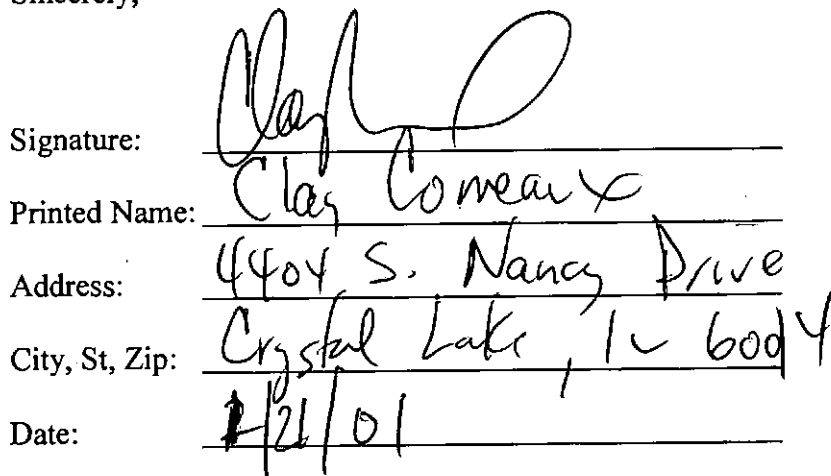 Sincerely,
Signature: Clay
Printed Name: Clay Comeaux
Address: 4404 S. Nancy Drive
City, St, Zip: Crystal Lake, IL 60014
Date: /21/01